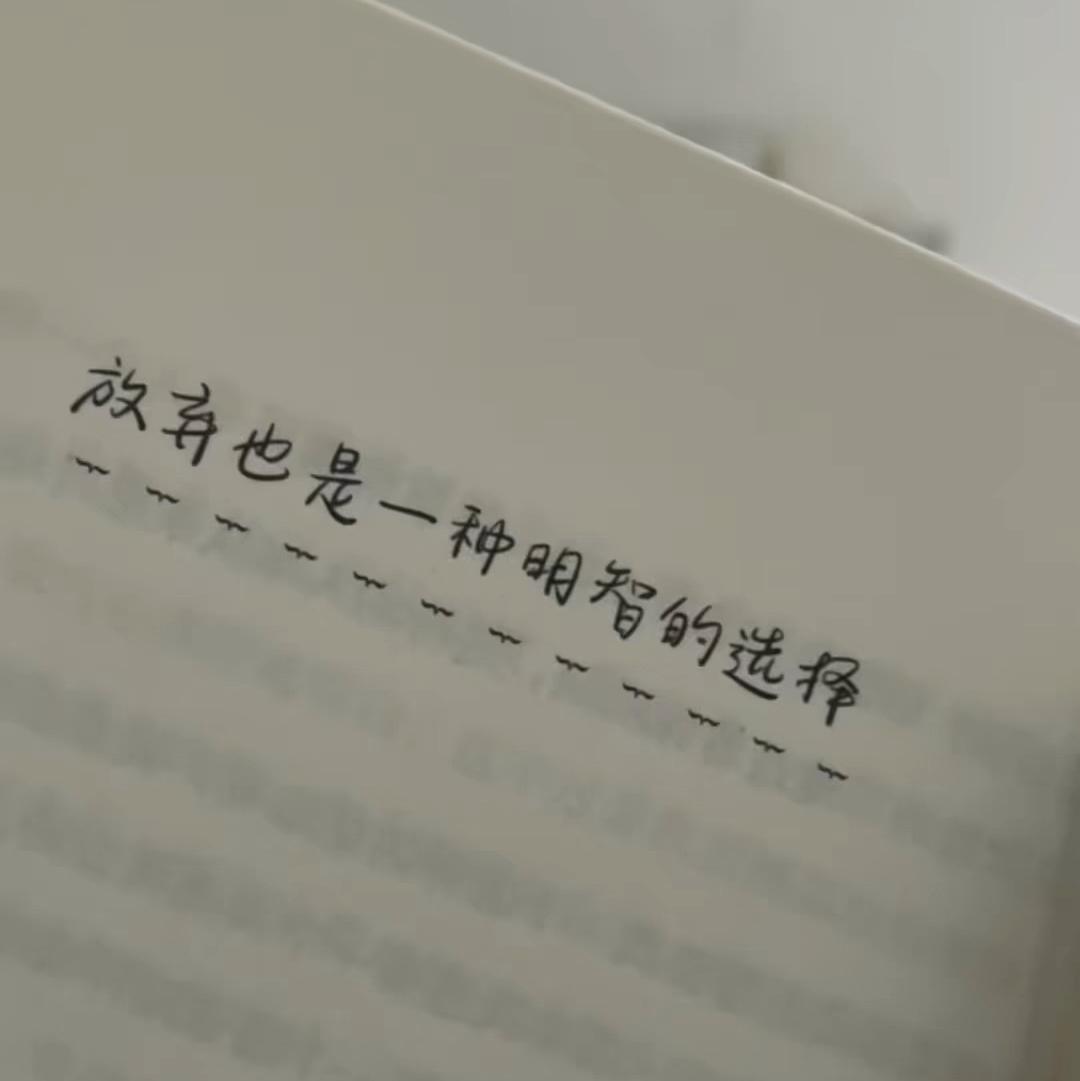 放弃也是一种明智的选择